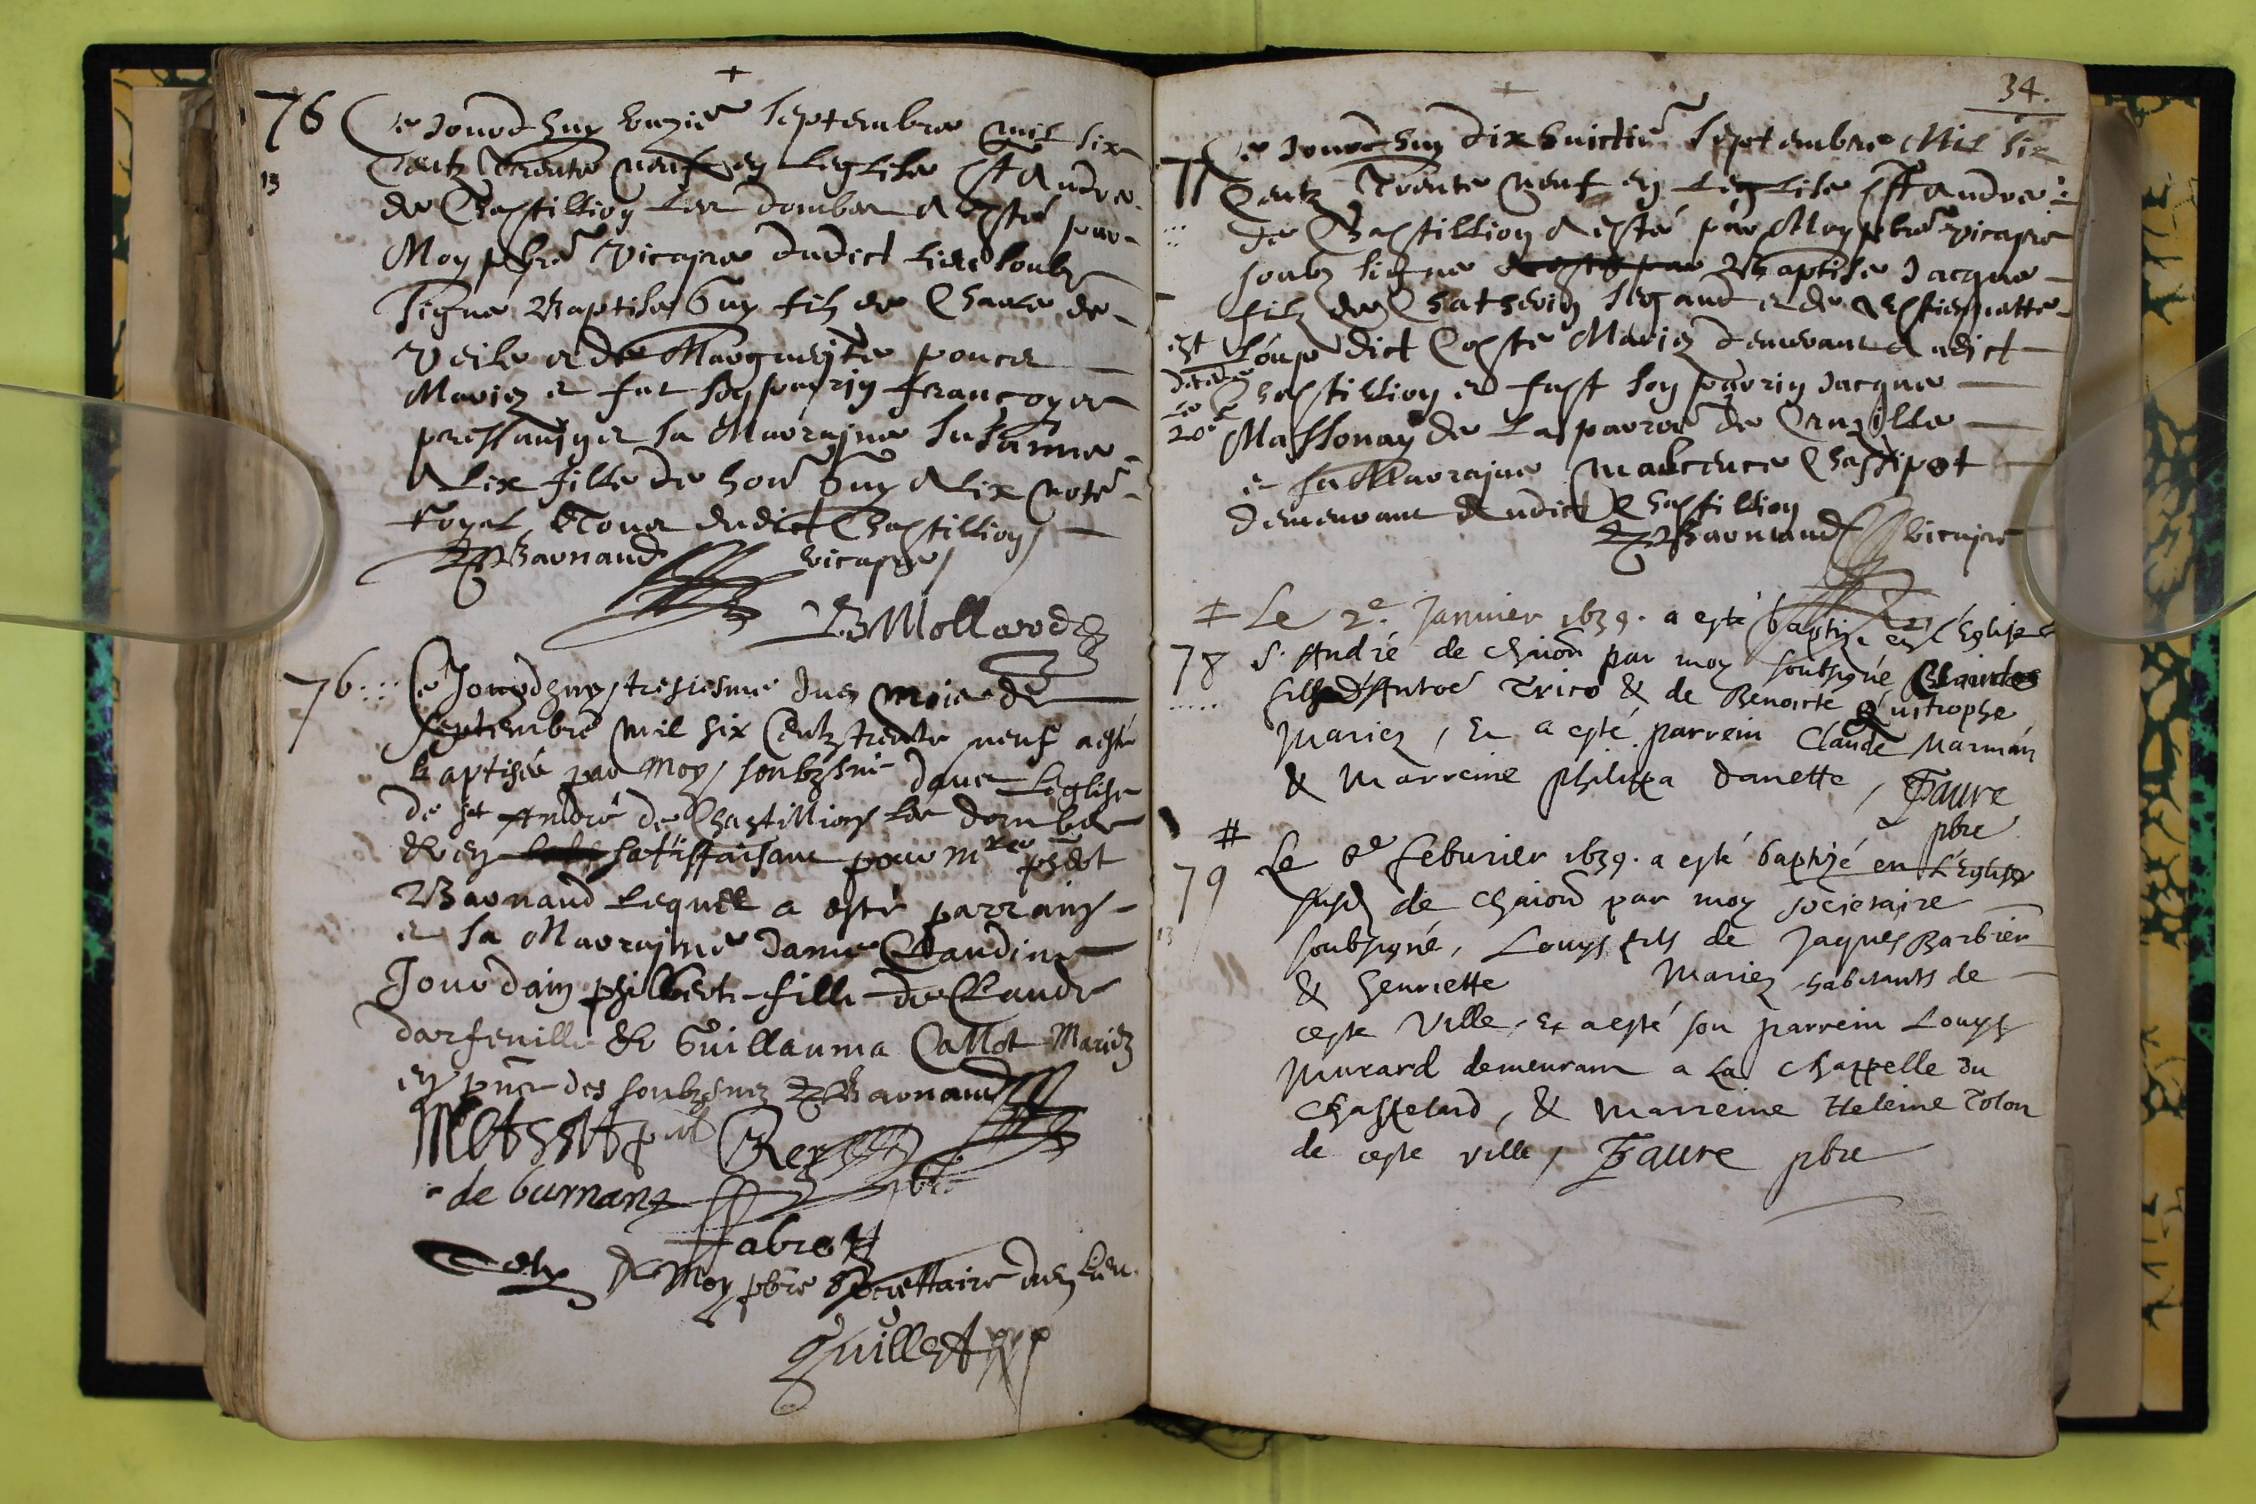 +
76 Ce jourdhuy onzie septembre mil six
centz trente neuf en leglise st Andre
13
de Chastillion les dombes a esté par
Moy pbre vicayre dudict lieu soubz
signe Baptise Guy filz de Charle de
veile et de Marguerite ponces
Mariez et fut son parrin francoys
pressaviger sa Marrayne Susanne
Alix fille de hon Guy Alix note
royal dudict Chastillion
Barnaud vicayre
Mollard
76 Ce Jourdhuy tresiesme dud mois de
septembre mil six centz trente neuf a esté
baptisée par moy soubzsné dans L'eglise
de st André de Chastillion les dombes
& en satisffaisant pour mre
Barnaud lequel a esté parrain
et sa Marrayne dame Claudine
Jourdain philberte fille de Claude
darfeuille & Guillauma Callot Mariez
en pnce des soubzsnez Barnaud
de burnanz
ffabre
& Moy pbre secrettaire dud lieu.
Guillet
34.
77 Ce jourdhuy dix huictie septembre Mil six
centz Trente neuf en Leglise st Andre
de Chastillion a esté par Moy pbre vicayre
soubz signe a esté par Baptise Jacque
filz de Chatherin Legand et de Estiennatte
est
Loup dict Coste Mariez demeurant Audict
decede
Chastillion et fust son parrin Jacque
le
20e
Massonay de La parroe de Cruzille
et sa Marrayne Chassipot
demeurant Audict Chastillion
Barnaud vicayre
+ Le 2e. Janvier 1639. a esté baptize en l'Eglise
78 S. André de chaion par moy soubsigné
fille d'Antoe Trico & de Benoicte
Mariez, Et a esté parrein Claude Marman
& Marreine philippa Danette, Faure
pbre
#
79 Le 6e feburier 1639. a esté baptizé en L'Eglise
susd de chaion par moy societaire
13
soubsigné, Louys fils de Jaques Barbier
& henriette Mariez habitants de
ceste Ville, Et a esté son parrein Louys
Murard demeurant a La Chappelle du
Chastelard, & Marreine Heleine Tolon
de ceste ville, Faure pbre